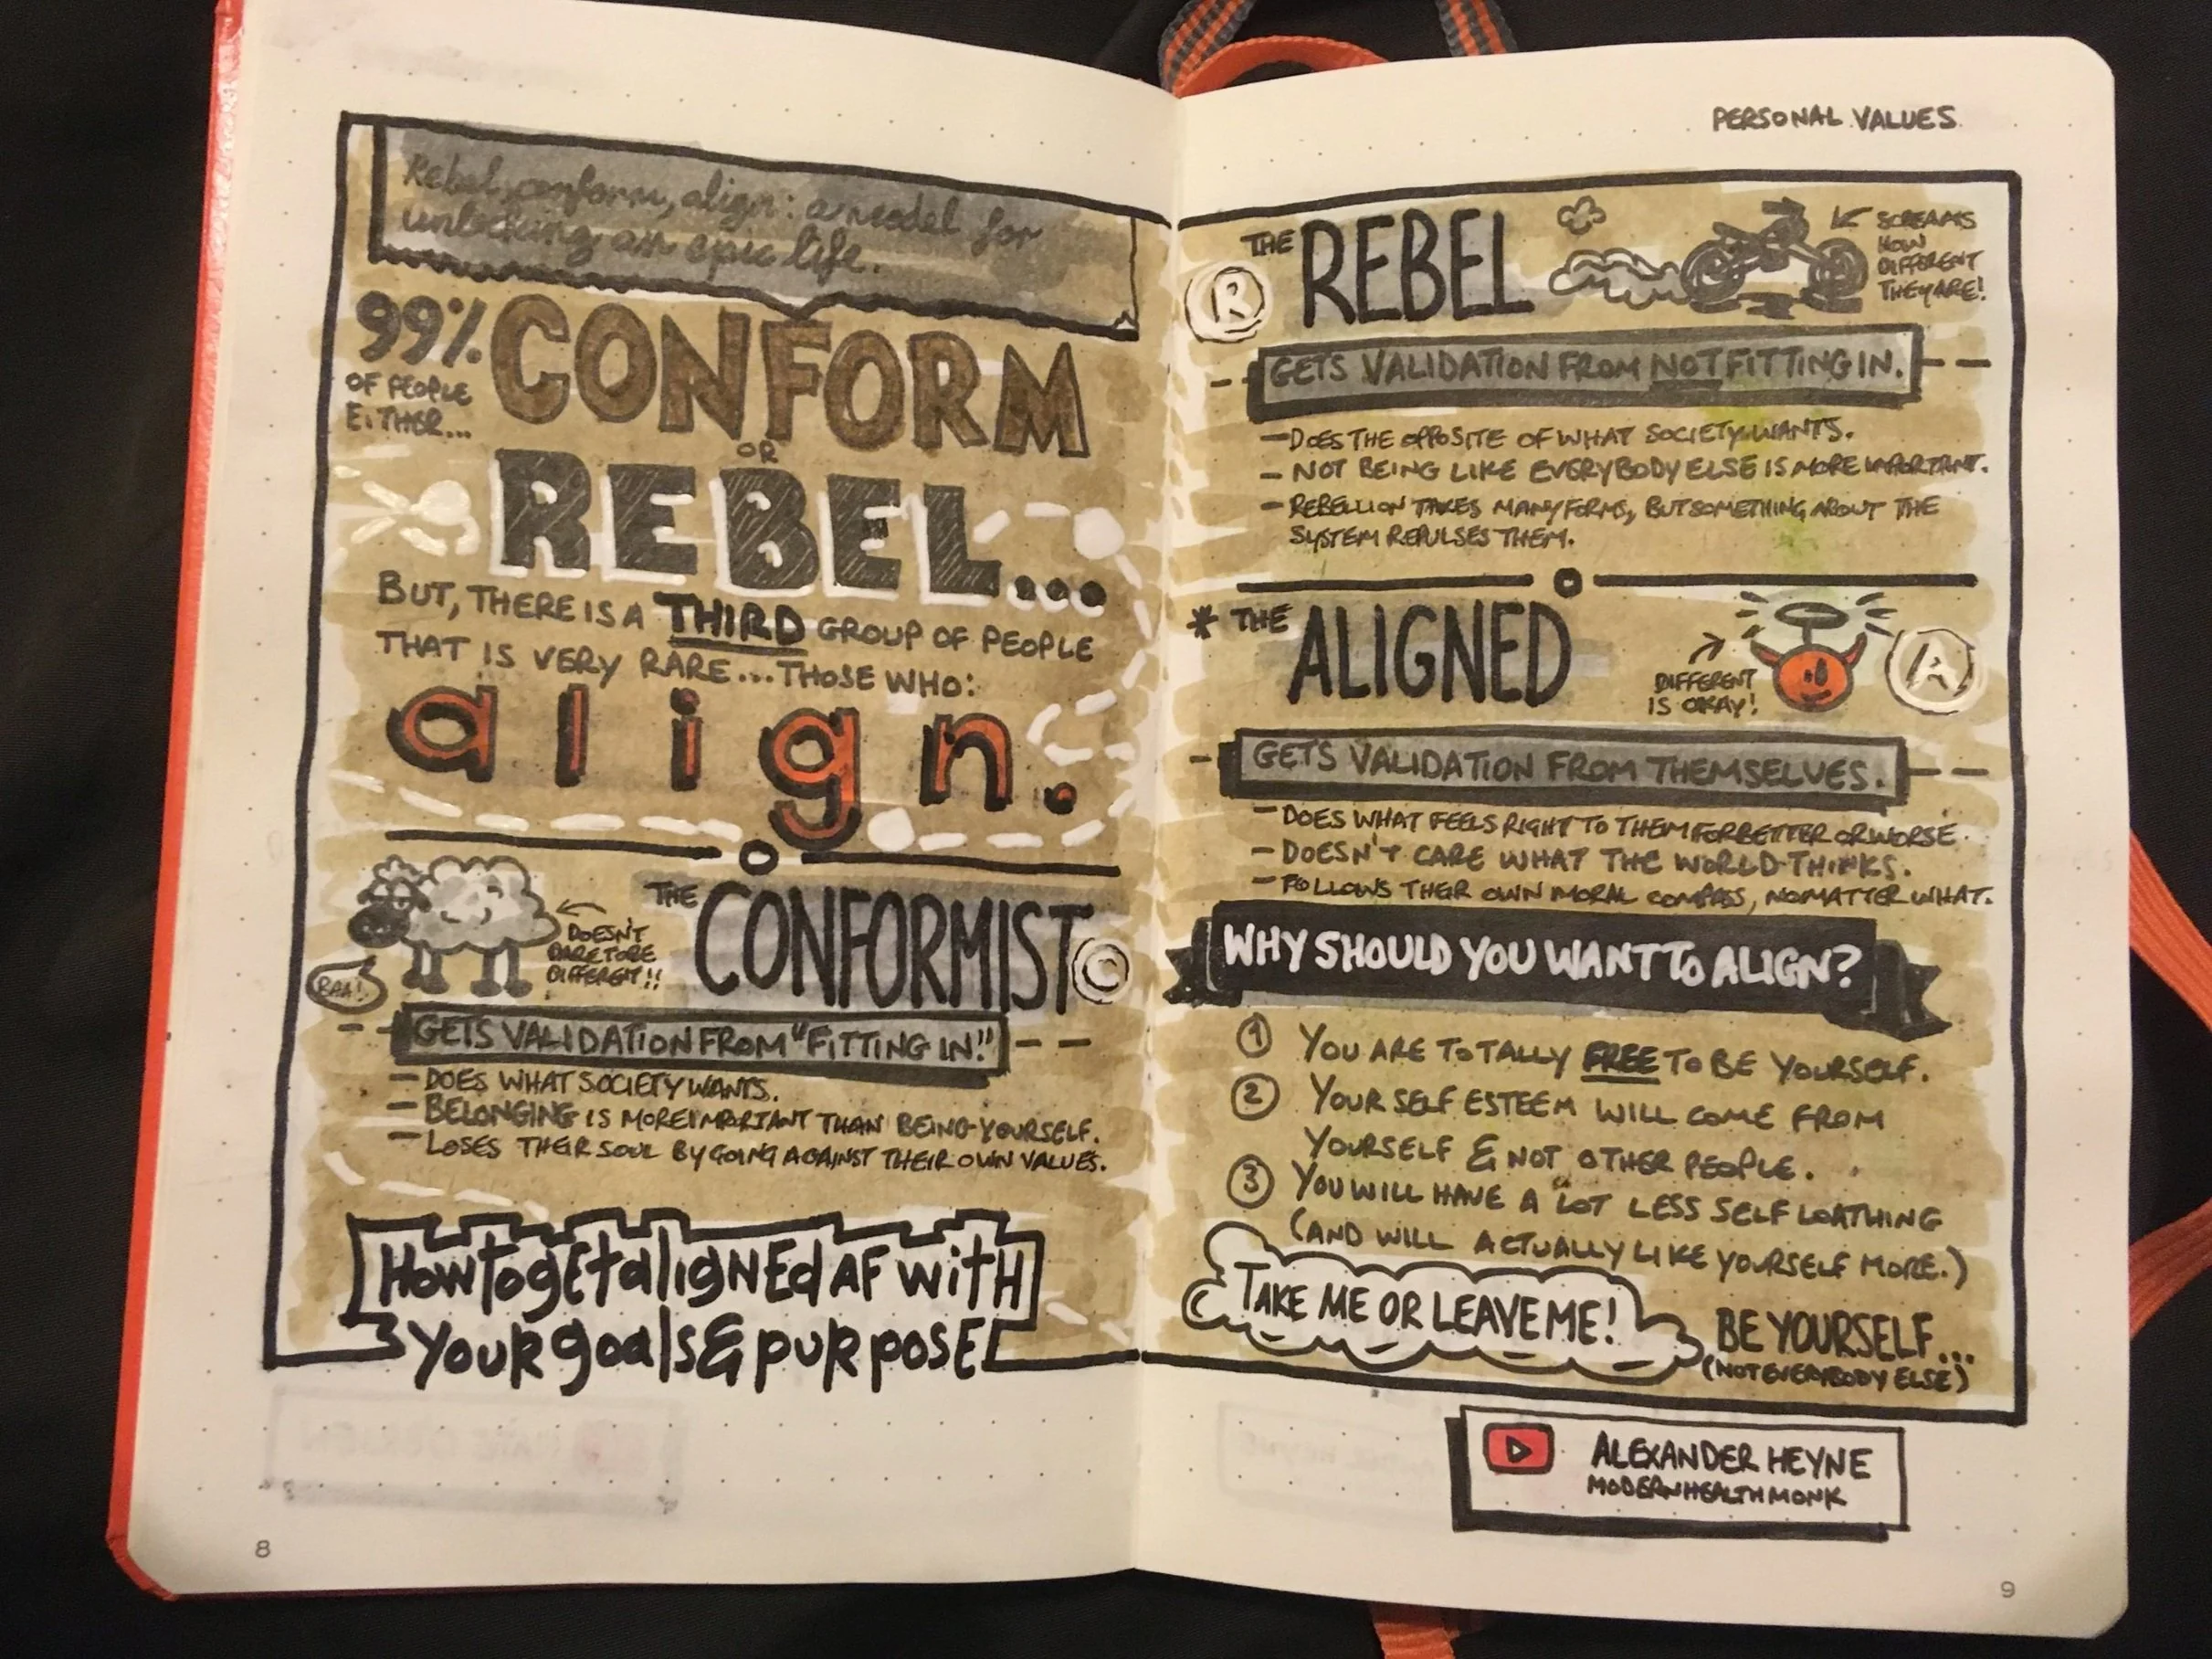 Rebel, conform, align: a model for
unlocking an epic life.
99%
OF PEOPLE
EITHER...
CONFORM
OR
REBEL...
BUT, THERE IS A THIRD GROUP OF PEOPLE
THAT IS VERY RARE... THOSE WHO:
align.
BAA!
DOESN'T
DARE TO BE
DIFFERENT!!
THE CONFORMIST
C
GETS VALIDATION FROM "FITTING IN!"
- DOES WHAT SOCIETY WANTS.
- BELONGING IS MORE IMPORTANT THAN BEING YOURSELF.
- LOSES THEIR SOUL BY GOING AGAINST THEIR OWN VALUES.
How to get aligned AF with
your goals & purpose
8
PERSONAL VALUES
R
THE REBEL
SCREAMS
HOW
DIFFERENT
THEY ARE!
GETS VALIDATION FROM NOT FITTING IN.
- DOES THE OPPOSITE OF WHAT SOCIETY WANTS.
- NOT BEING LIKE EVERYBODY ELSE IS MORE IMPORTANT.
- REBELLION TAKES MANY FORMS, BUT SOMETHING ABOUT THE
SYSTEM REPULSES THEM.
* THE ALIGNED
DIFFERENT
IS OKAY!
A
GETS VALIDATION FROM THEMSELVES.
- DOES WHAT FEELS RIGHT TO THEM FOR BETTER OR WORSE.
- DOESN'T CARE WHAT THE WORLD THINKS.
- FOLLOWS THEIR OWN MORAL COMPASS, NO MATTER WHAT.
WHY SHOULD YOU WANT TO ALIGN?
1 YOU ARE TOTALLY FREE TO BE YOURSELF.
2 YOUR SELF ESTEEM WILL COME FROM
YOURSELF & NOT OTHER PEOPLE.
3 YOU WILL HAVE A LOT LESS SELF LOATHING
(AND WILL ACTUALLY LIKE YOURSELF MORE.)
TAKE ME OR LEAVE ME!
BE YOURSELF...
(NOT EVERYBODY ELSE)
ALEXANDER HEYNE
MODERNHEALTHMONK
9